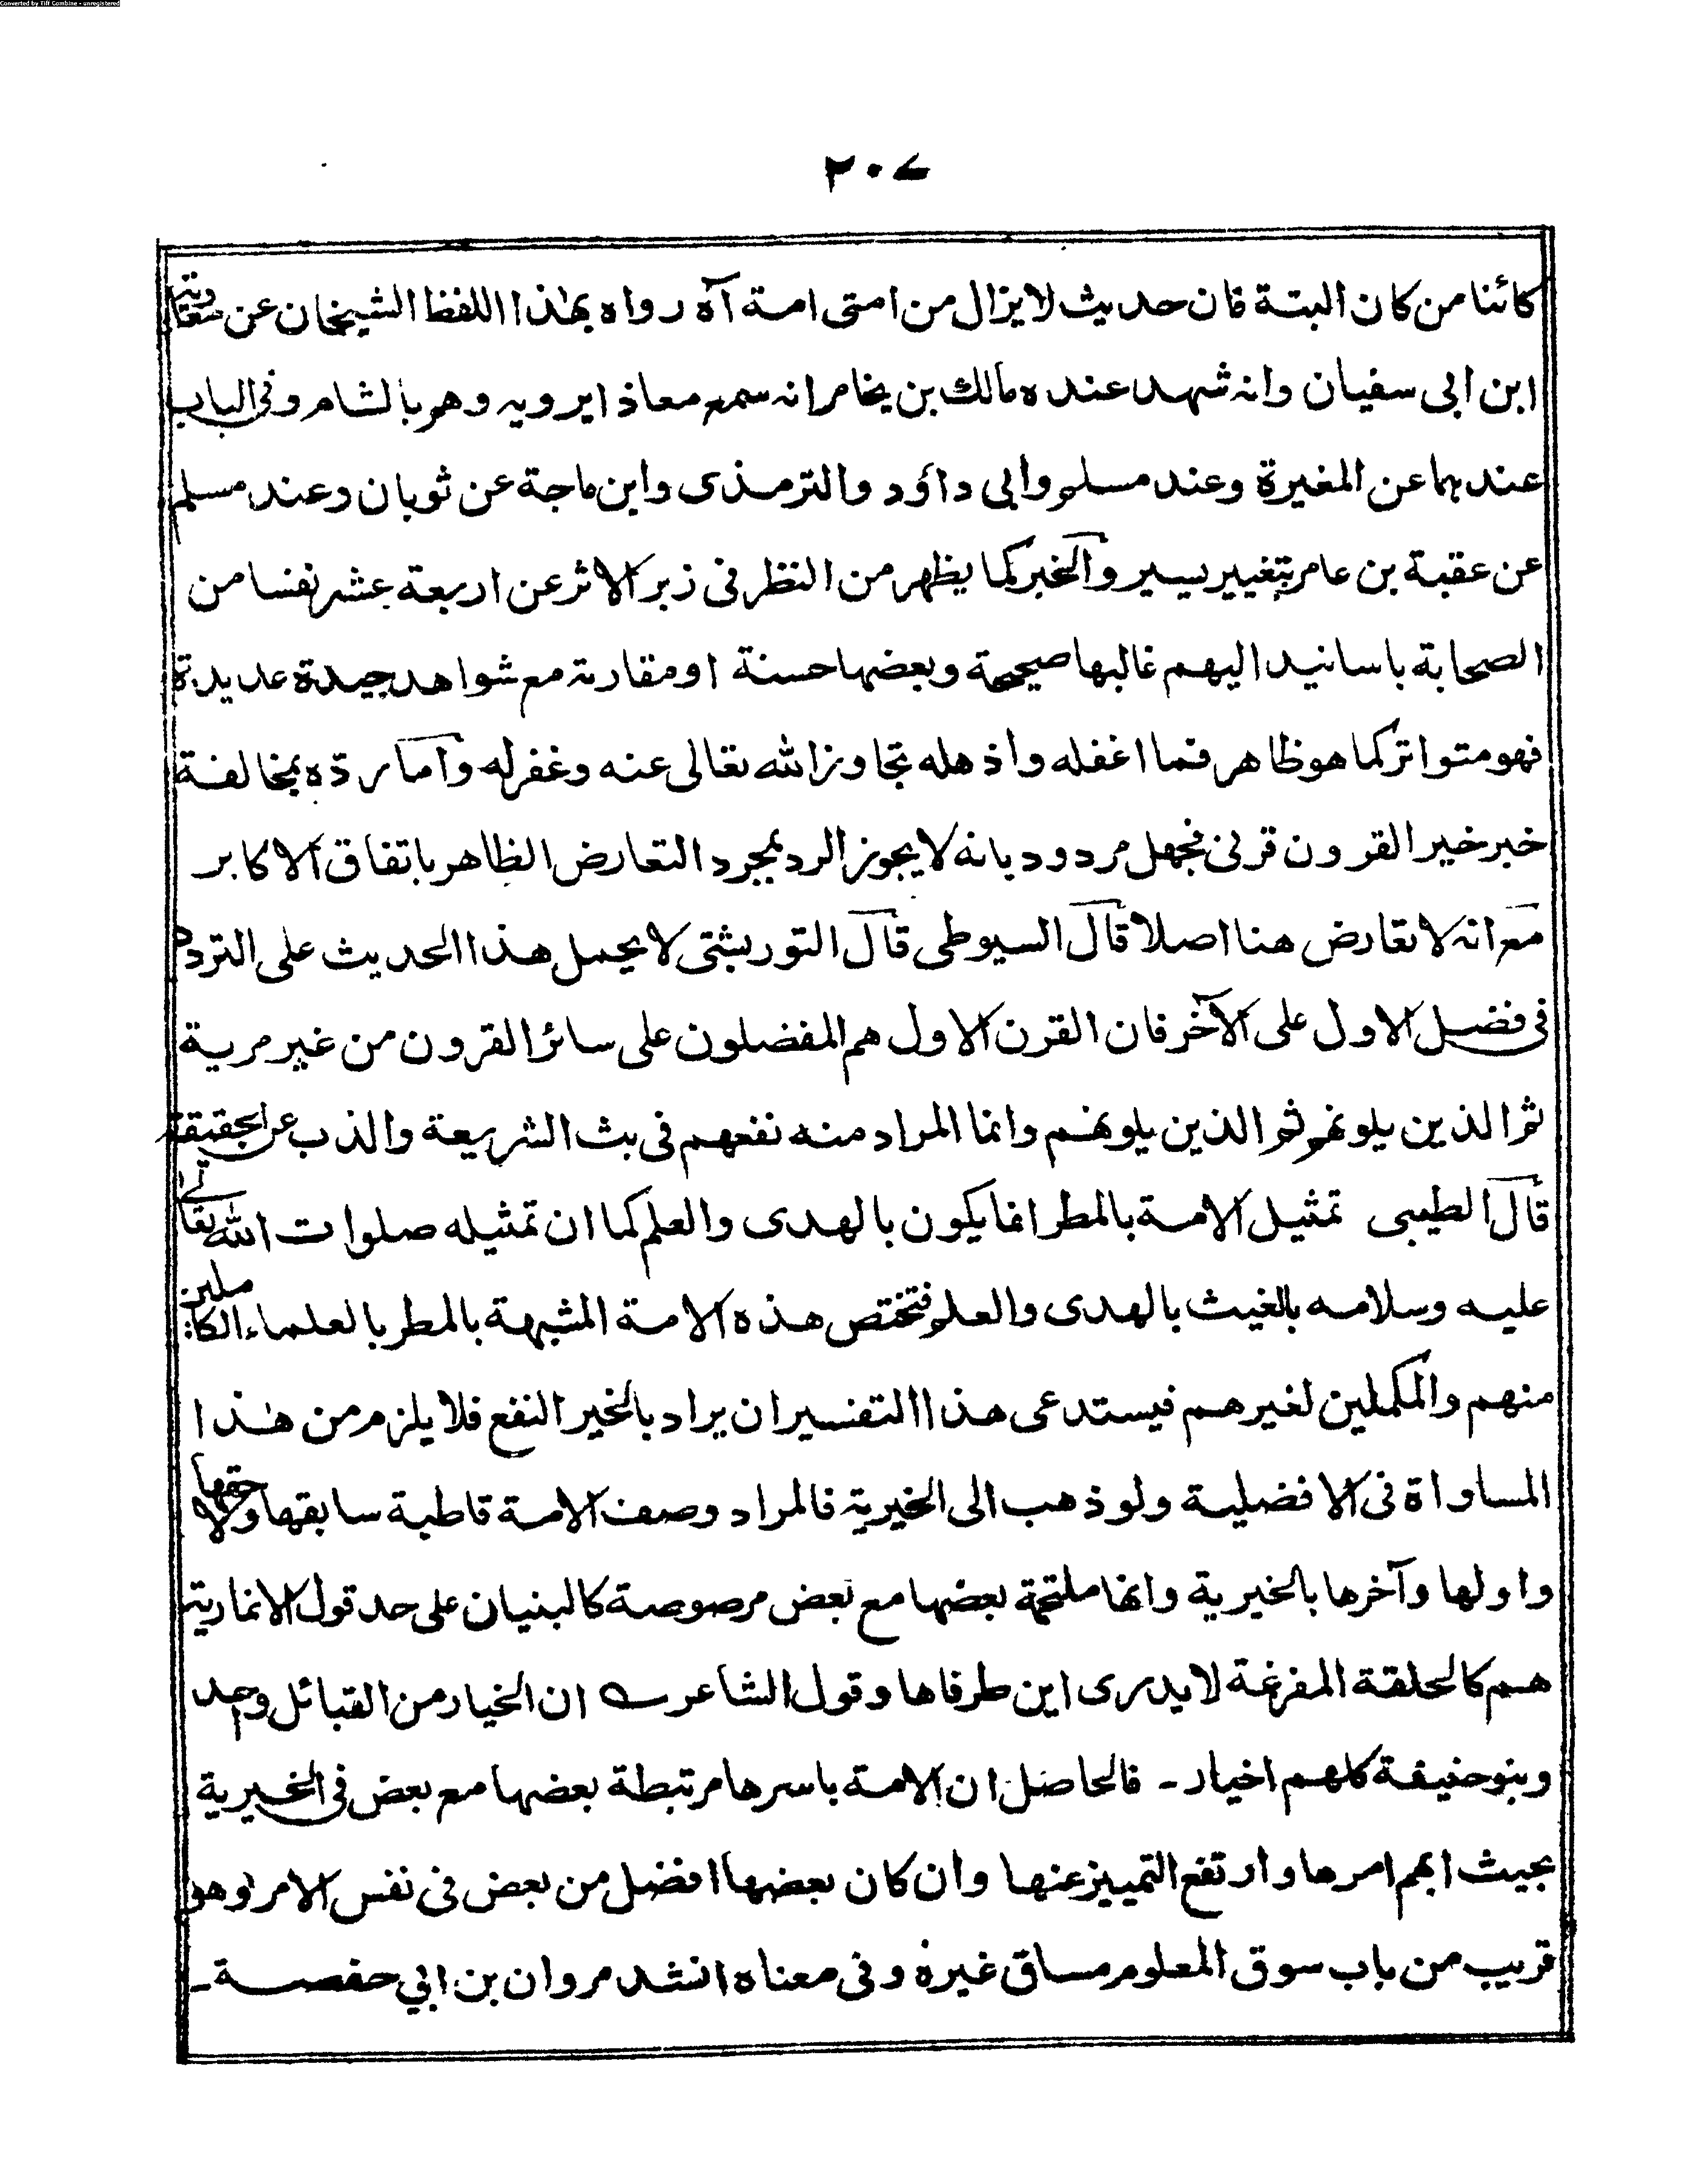 Converted by Tiff Combine - unregistered
٢٠٧
كائنا من كان البتة فان حديث لا يزال من امتى امة آه رواه بهٰذا اللفظ الشيخان عن معاوية
ابن ابى سفيان وانه شهد عنده مالك بن يخامر انه سمع معاذا يرويه وهو بالشام وفى الباب
عندهما عن المغيرة وعند مسلم وابى داؤد والترمذى وابن ماجة عن ثوبان وعند مسلم
عن عقبة بن عامر بتغيير يسير والخبر كما يظهر من النظر فى زبر الاثر عن اربعة عشر نفسا من
الصحابة باسانيد اليهم غالبها صحيحة وبعضها حسنة او مقاربة مع شواهد جيدة عديدة
فهو متواتر كما هو ظاهر فما اغفله واذهله تجاوز الله تعالى عنه وغفر له واما رده بمخالفة
خبر خير القرون قرنى فجهل مردود بانه لا يجوز الرد بمجرد التعارض الظاهر باتفاق الاكابر
مع انه لا تعارض هنا اصلا قال السيوطى قال التوربشتى لا يحمل هذا الحديث على التردد
فى فضل الاول على الآخر فان القرن الاول هم المفضلون على سائر القرون من غير مرية
ثم الذين يلونهم ثم الذين يلونهم وانما المراد منه نفعهم فى بث الشريعة والذب عن الحقيقة
قال الطيبى تمثيل الامة بالمطر انما يكون بالهدى والعلم كما ان تمثيله صلوات الله تعالى
عليه وسلامه بالغيث بالهدى والعلم فتختص هذه الامة المشبهة بالمطر بالعلماء الكاملين
منهم والمكملين لغيرهم فيستدعى هذا التفسير ان يراد بالخير النفع فلا يلزم من هٰذا
المساواة فى الافضلية ولو ذهب الى الخيرية فالمراد وصف الامة قاطبة سابقها ولاحقها
واولها وآخرها بالخيرية وانها ملتحمة بعضها مع بعض مرصوصة كالبنيان على حد قول الانمارية
هم كالحلقة المفرغة لا يدرى اين طرفاها وقول الشاعر ؎ ان الخيار من القبائل واحد
وبنو حنيفة كلهم اخيار - فالحاصل ان الامة باسرها مرتبطة بعضها مع بعض فى الخيرية
بحيث ابهم امرها وارتفع التمييز عنها وان كان بعضها افضل من بعض فى نفس الامر وهو
قريب من باب سوق المعلوم مساق غيره وفى معناه انشد مروان بن ابي حفصة -